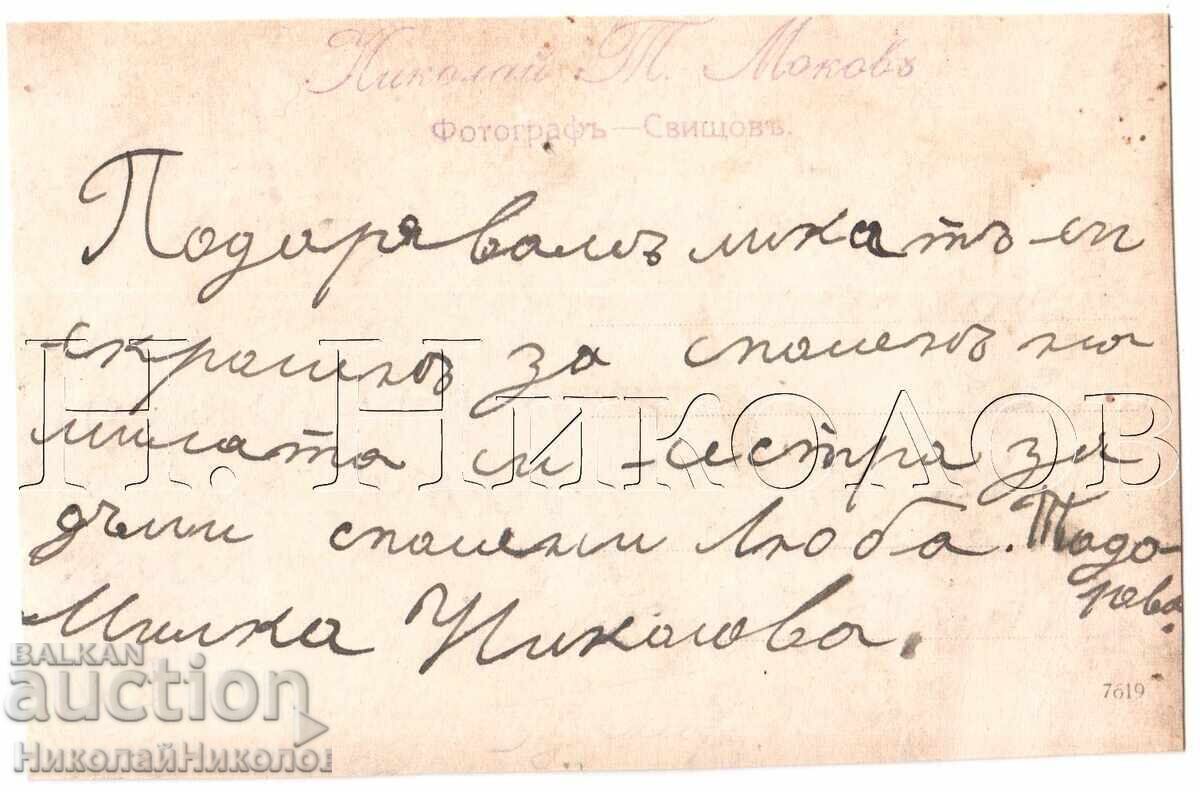 Николай Т. Моковъ
Фотографъ — Свищовъ.
Подарявамъ ликатъ си
скромнъ за споменъ на
милата си сестра за
дълги спомени Люба. Тодо-
рова.
Милка Николова.
7619
Н. НИКОЛОВ
BALKAN
auction
НиколайНиколов